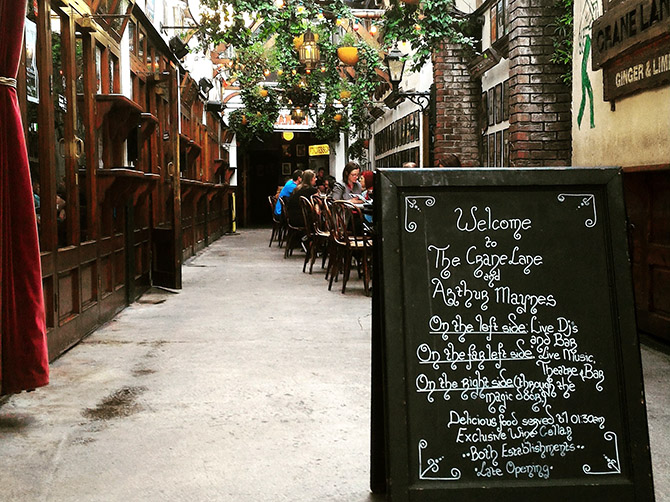 Welcome
to
The Crane Lane
and
Arthur Maynes
On the left side: Live Dj's
and Bar
On the far left side: Live Music,
Theatre & Bar
On the right side (through the
magic door)
Delicious food served 'til 01:30am
Exclusive Wine Cellar
··Both Establishments··
·Late Opening·
CRANE LAN
GINGER & LIME